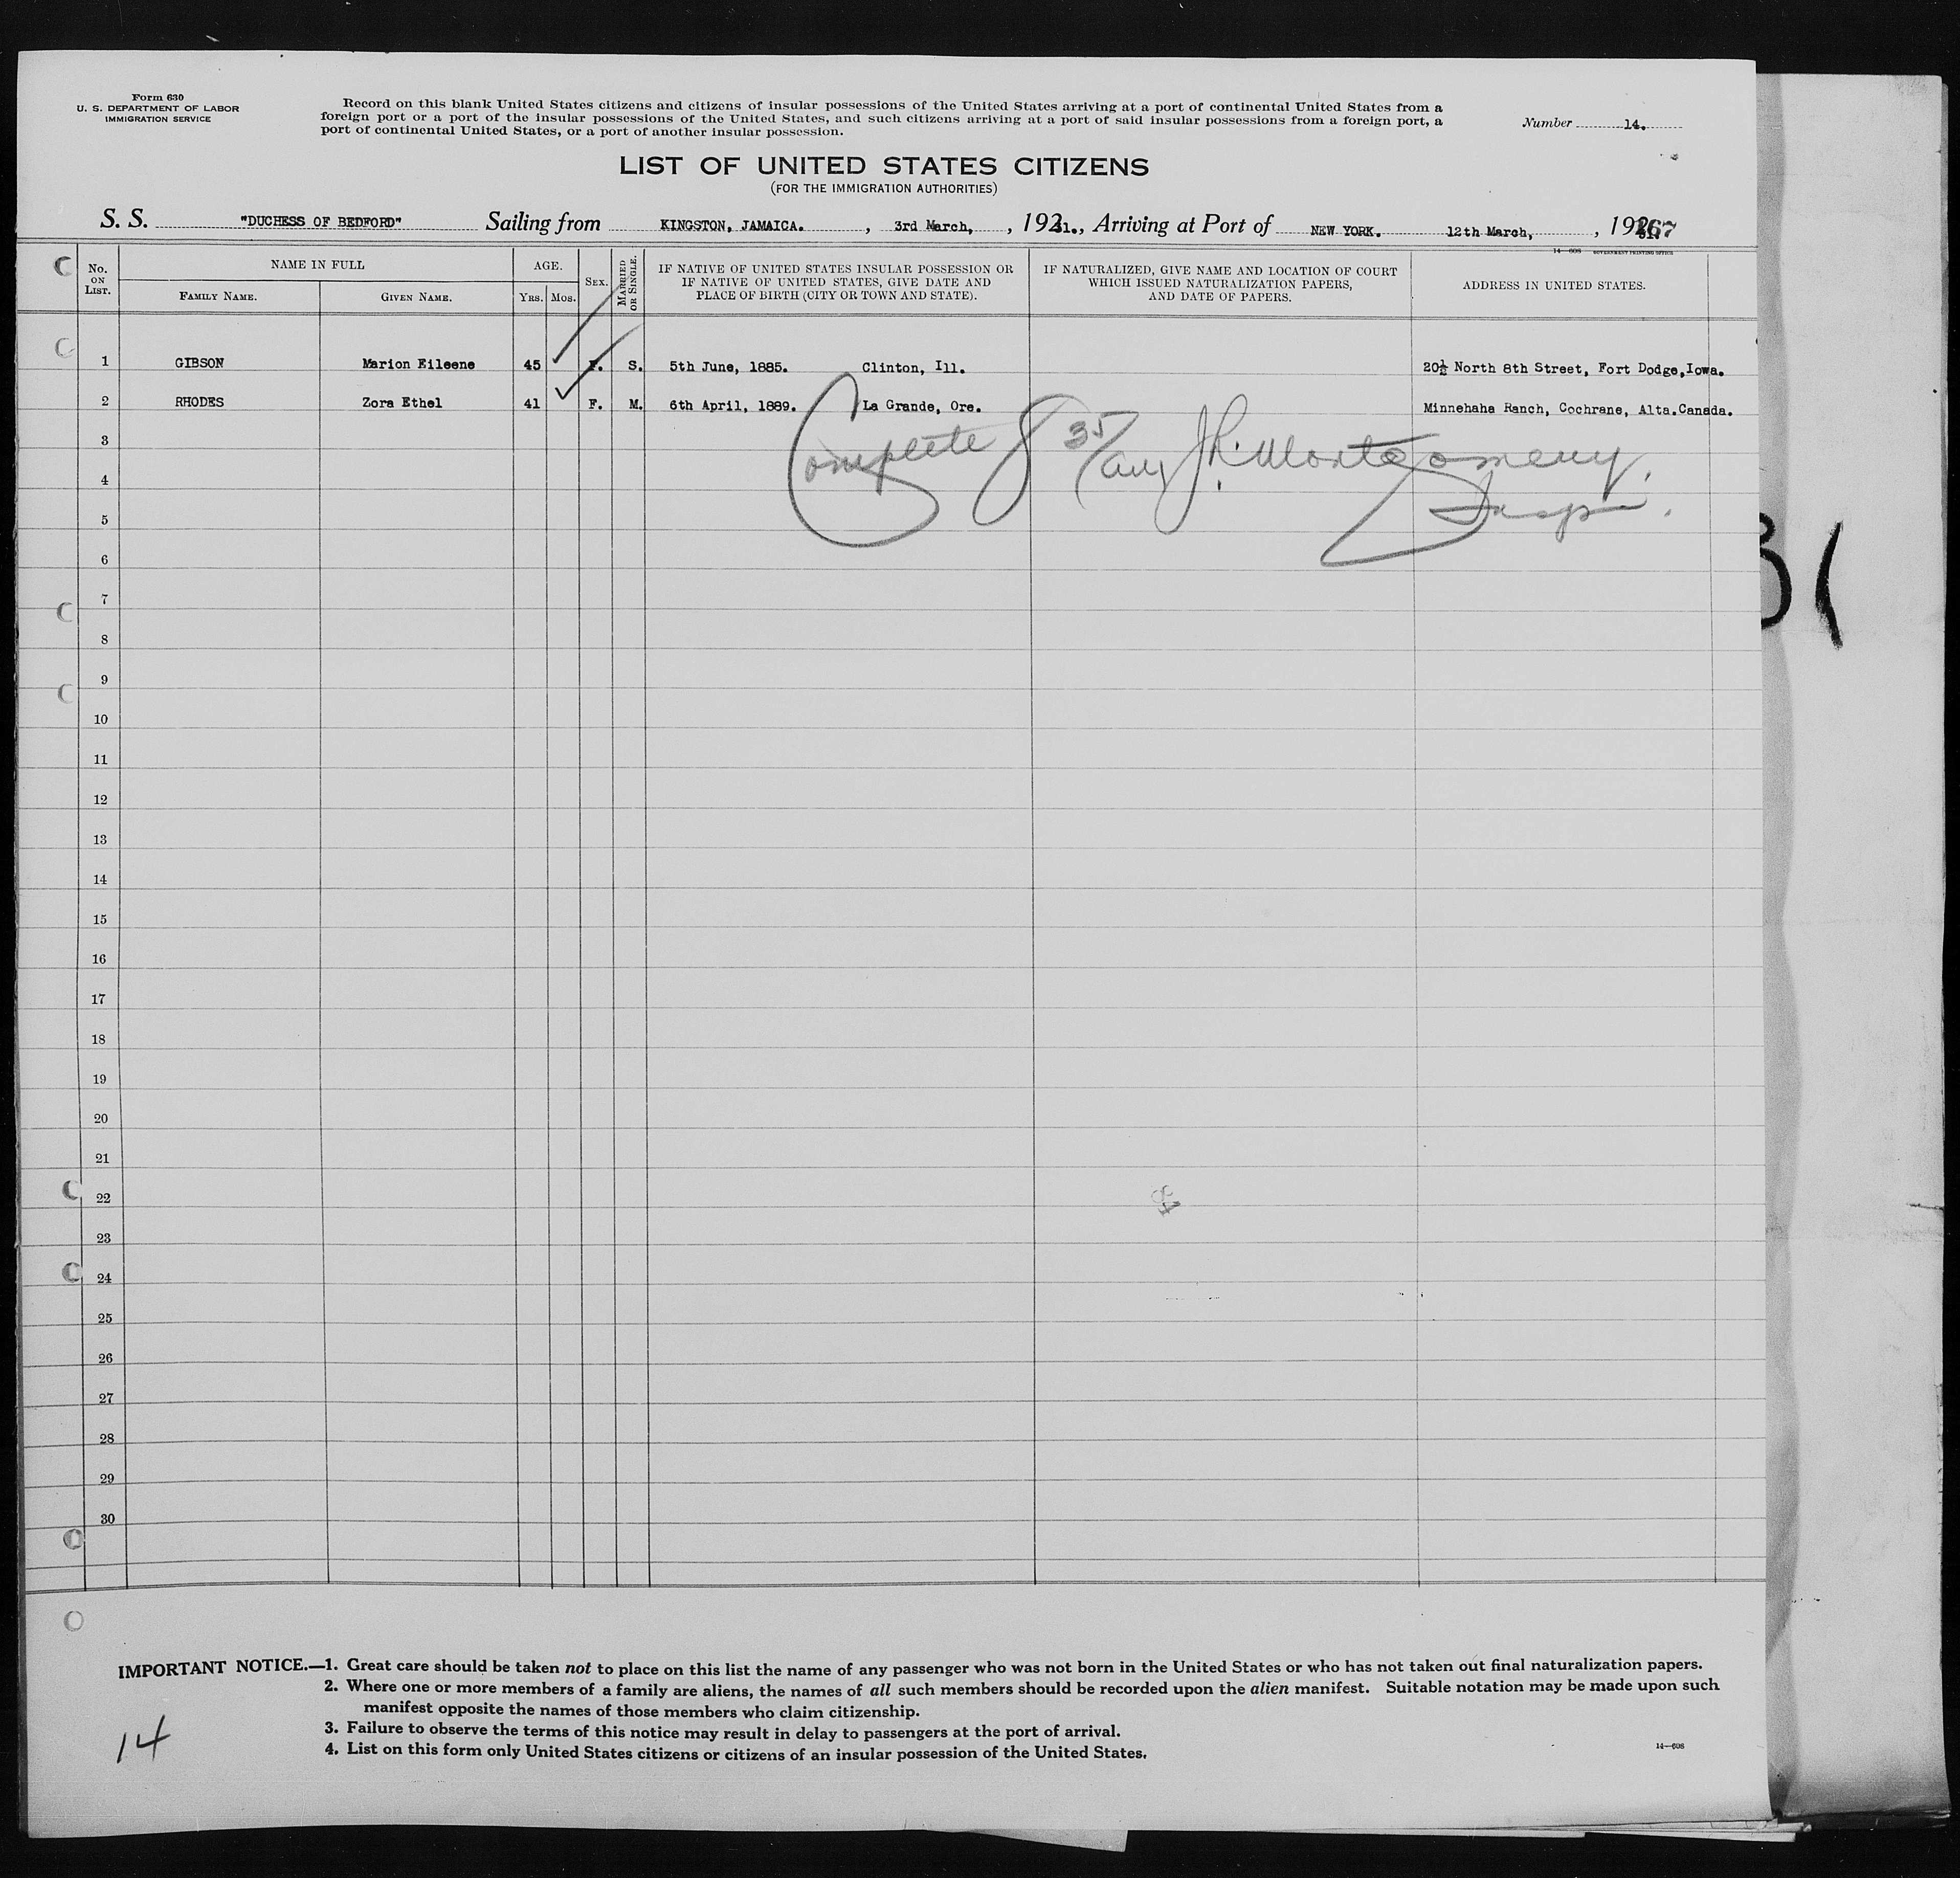 Form 630
U. S. DEPARTMENT OF LABOR
IMMIGRATION SERVICE
Record on this blank United States citizens and citizens of insular possessions of the United States arriving at a port of continental United States from a
foreign port or a port of the insular possessions of the United States, and such citizens arriving at a port of said insular possessions from a foreign port, a
port of continental United States, or a port of another insular possession.
Number 14.
LIST OF UNITED STATES CITIZENS
(FOR THE IMMIGRATION AUTHORITIES)
S. S. "DUCHESS OF BEDFORD" Sailing from KINGSTON, JAMAICA. , 3rd March, , 1931., Arriving at Port of NEW YORK. 12th March, , 19 31. 67
14—608 GOVERNMENT PRINTING OFFICE
No. ON LIST. NAME IN FULL AGE. SEX. MARRIED OR SINGLE. IF NATIVE OF UNITED STATES INSULAR POSSESSION OR IF NATIVE OF UNITED STATES, GIVE DATE AND PLACE OF BIRTH (CITY OR TOWN AND STATE). IF NATURALIZED, GIVE NAME AND LOCATION OF COURT WHICH ISSUED NATURALIZATION PAPERS, AND DATE OF PAPERS. ADDRESS IN UNITED STATES.
FAMILY NAME. GIVEN NAME. YRS. MOS.
1 GIBSON Marion Eileene 45 F. S. 5th June, 1885. Clinton, Ill. 20½ North 8th Street, Fort Dodge, Iowa.
2 RHODES Zora Ethel 41 F. M. 6th April, 1889. La Grande, Ore. Minnehaha Ranch, Cochrane, Alta.Canada.
Complete 8 35 J.R. Montgomery.
Insp.
3
4
5
6
7
8
9
10
11
12
13
14
15
16
17
18
19
20
21
22
23
24
25
26
27
28
29
30
IMPORTANT NOTICE.—1. Great care should be taken not to place on this list the name of any passenger who was not born in the United States or who has not taken out final naturalization papers.
2. Where one or more members of a family are aliens, the names of all such members should be recorded upon the alien manifest. Suitable notation may be made upon such
manifest opposite the names of those members who claim citizenship.
3. Failure to observe the terms of this notice may result in delay to passengers at the port of arrival.
4. List on this form only United States citizens or citizens of an insular possession of the United States.
14
14—608